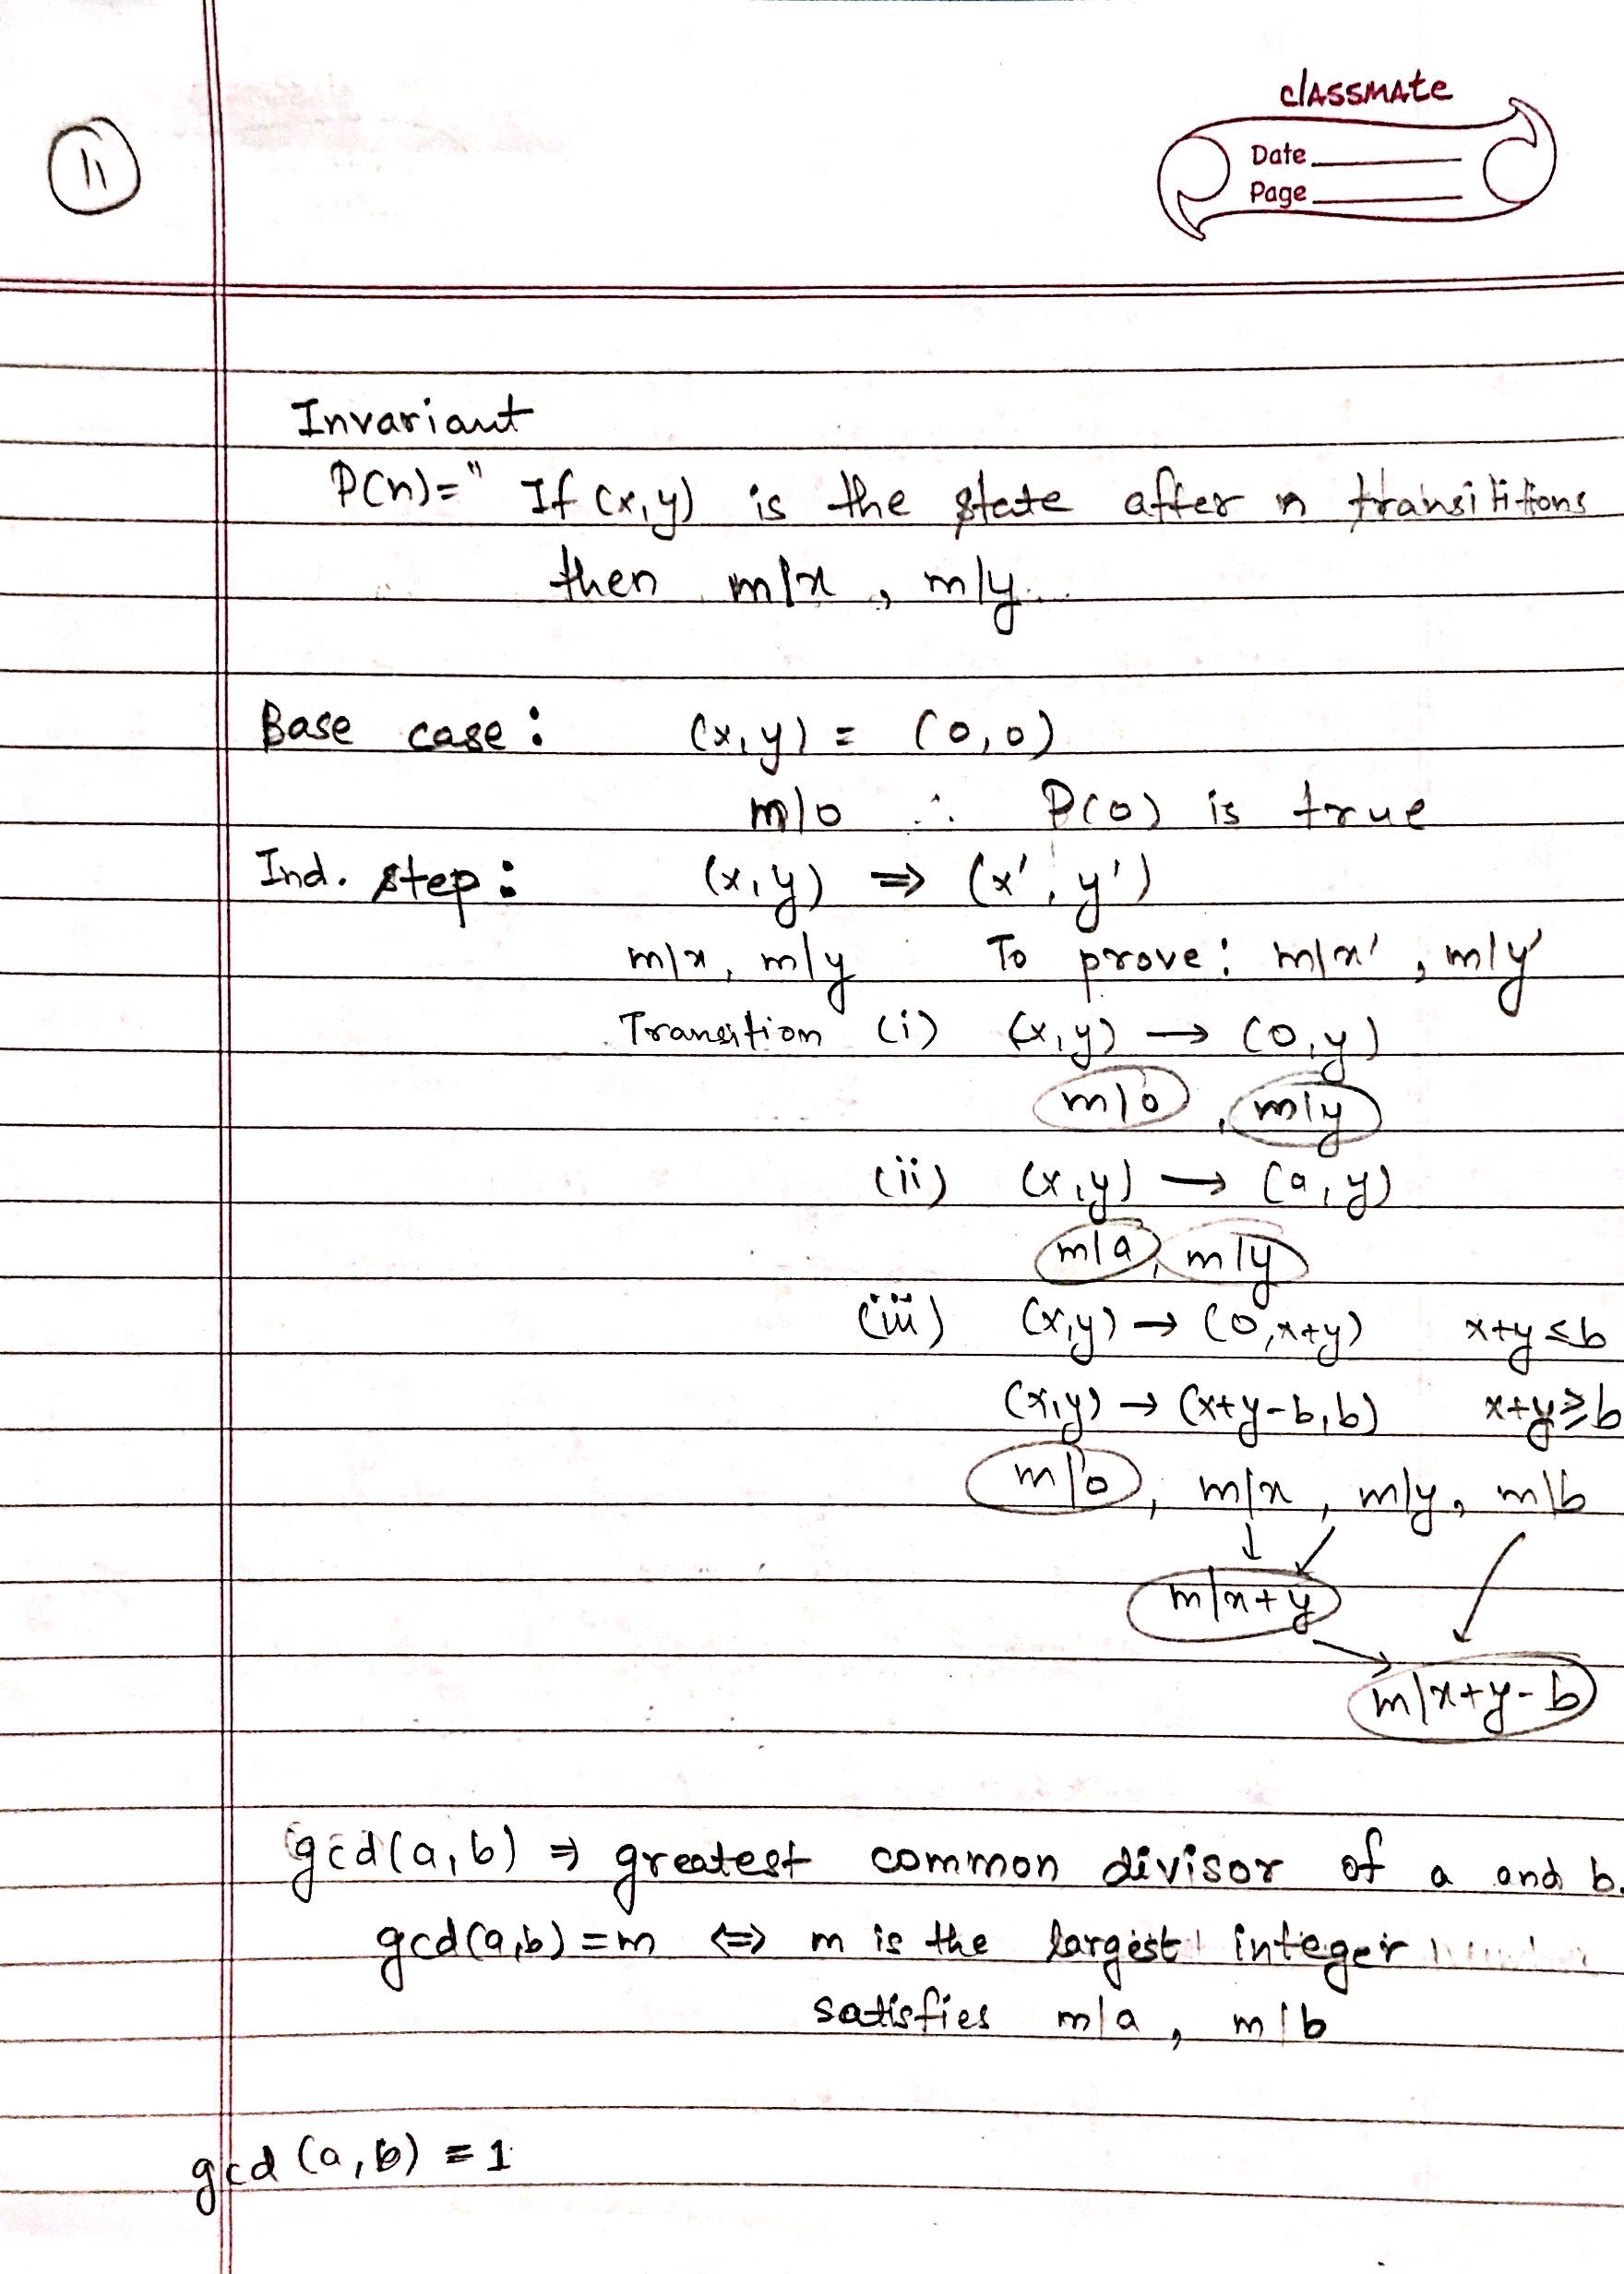 11
classmate
Date
Page
Invariant
P(n)=" If (x,y) is the state after n transititions
then m|x , m|y
Base case : (x,y) = (0,0)
m|0 ∴ P(0) is true
Ind. step : (x,y) ⇒ (x',y')
m|x, m|y To prove : m|x' , m|y'
Transition (i) (x,y) → (0,y)
m|0 , m|y
(ii) (x,y) → (a,y)
m|a, m|y
(iii) (x,y) → (0,x+y) x+y≤b
(x,y) → (x+y-b,b) x+y≥b
m|0, m|x , m|y, m|b
↓ ↙
m|x+y ↙
→
m|x+y-b
gcd(a,b) ⇒ greatest common divisor of a and b.
gcd(a,b)=m ⇔ m is the largest integer
satisfies m|a , m|b
gcd (a,b) = 1